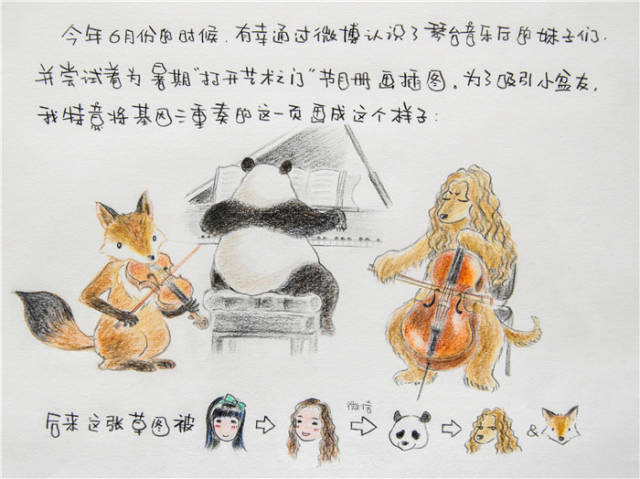 今年6月份的时候，有幸通过微博认识了琴台音乐厅的妹子们，
并尝试着为暑期“打开艺术之门”节目册画插图。为了吸引小盆友，
我特意将基因三重奏的这一页画成这个样子：
微信
后来这张草图被 ⇨ ⇨ ⇨ &